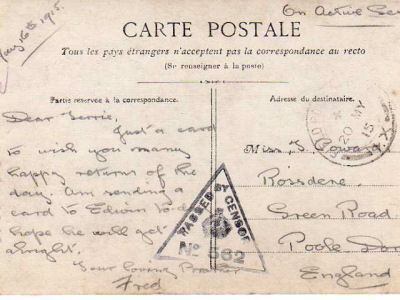 On Active
May 16th 1915.
CARTE POSTALE
Tous les pays étrangers n'acceptent pas la correspondance au recto
(Se renseigner à la poste)
Partie réservée à la correspondance.
Adresse du destinataire.
Dear
Just a card
to wish you many
happy returns of the
day. Am sending a
card to Edwin to
hope he will get
alright.
Your loving Brother
Fred
FIELD
20 MY
15
PASSED BY CENSOR
No 662
Miss
Rossdene
Green Road
Poole
England